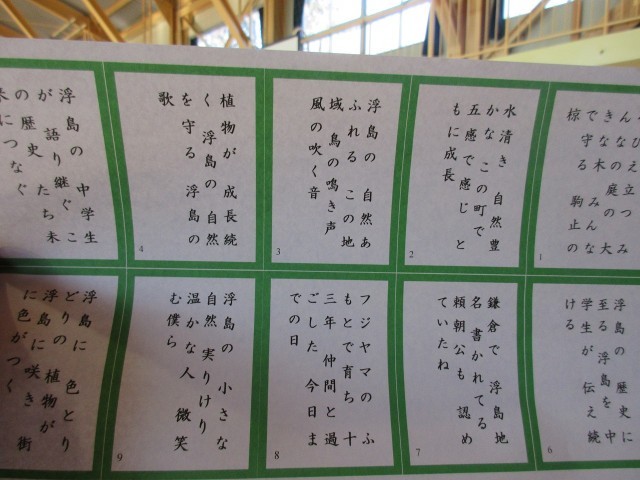 椋守る 駒止の
1
水清き 自然豊
かな この町で
五感で感じと
もに成長
2
浮島の 自然あ
ふれる この地
域 鳥の鳴き声
風の吹く音
3
植物が 成長続
く 浮島の自然
を守る 浮島の
歌
4
浮島の 中学生
が 語り継ぐ こ
の歴史 たち 未
来につなぐ
浮島の 歴史に
至る 浮島を 中
学生が 伝え続
ける
6
鎌倉で 浮島地
名 書かれてる
頼朝公も 認め
ていたね
7
フジヤマのふ
もとで育ち 十
三年 仲間と過
ごした 今日ま
での日
8
浮島の 小さな
自然 実りけり
温かな人 微笑
む僕ら
9
浮島に 色とり
どりの 植物が
浮島に咲き 街
に色がつく